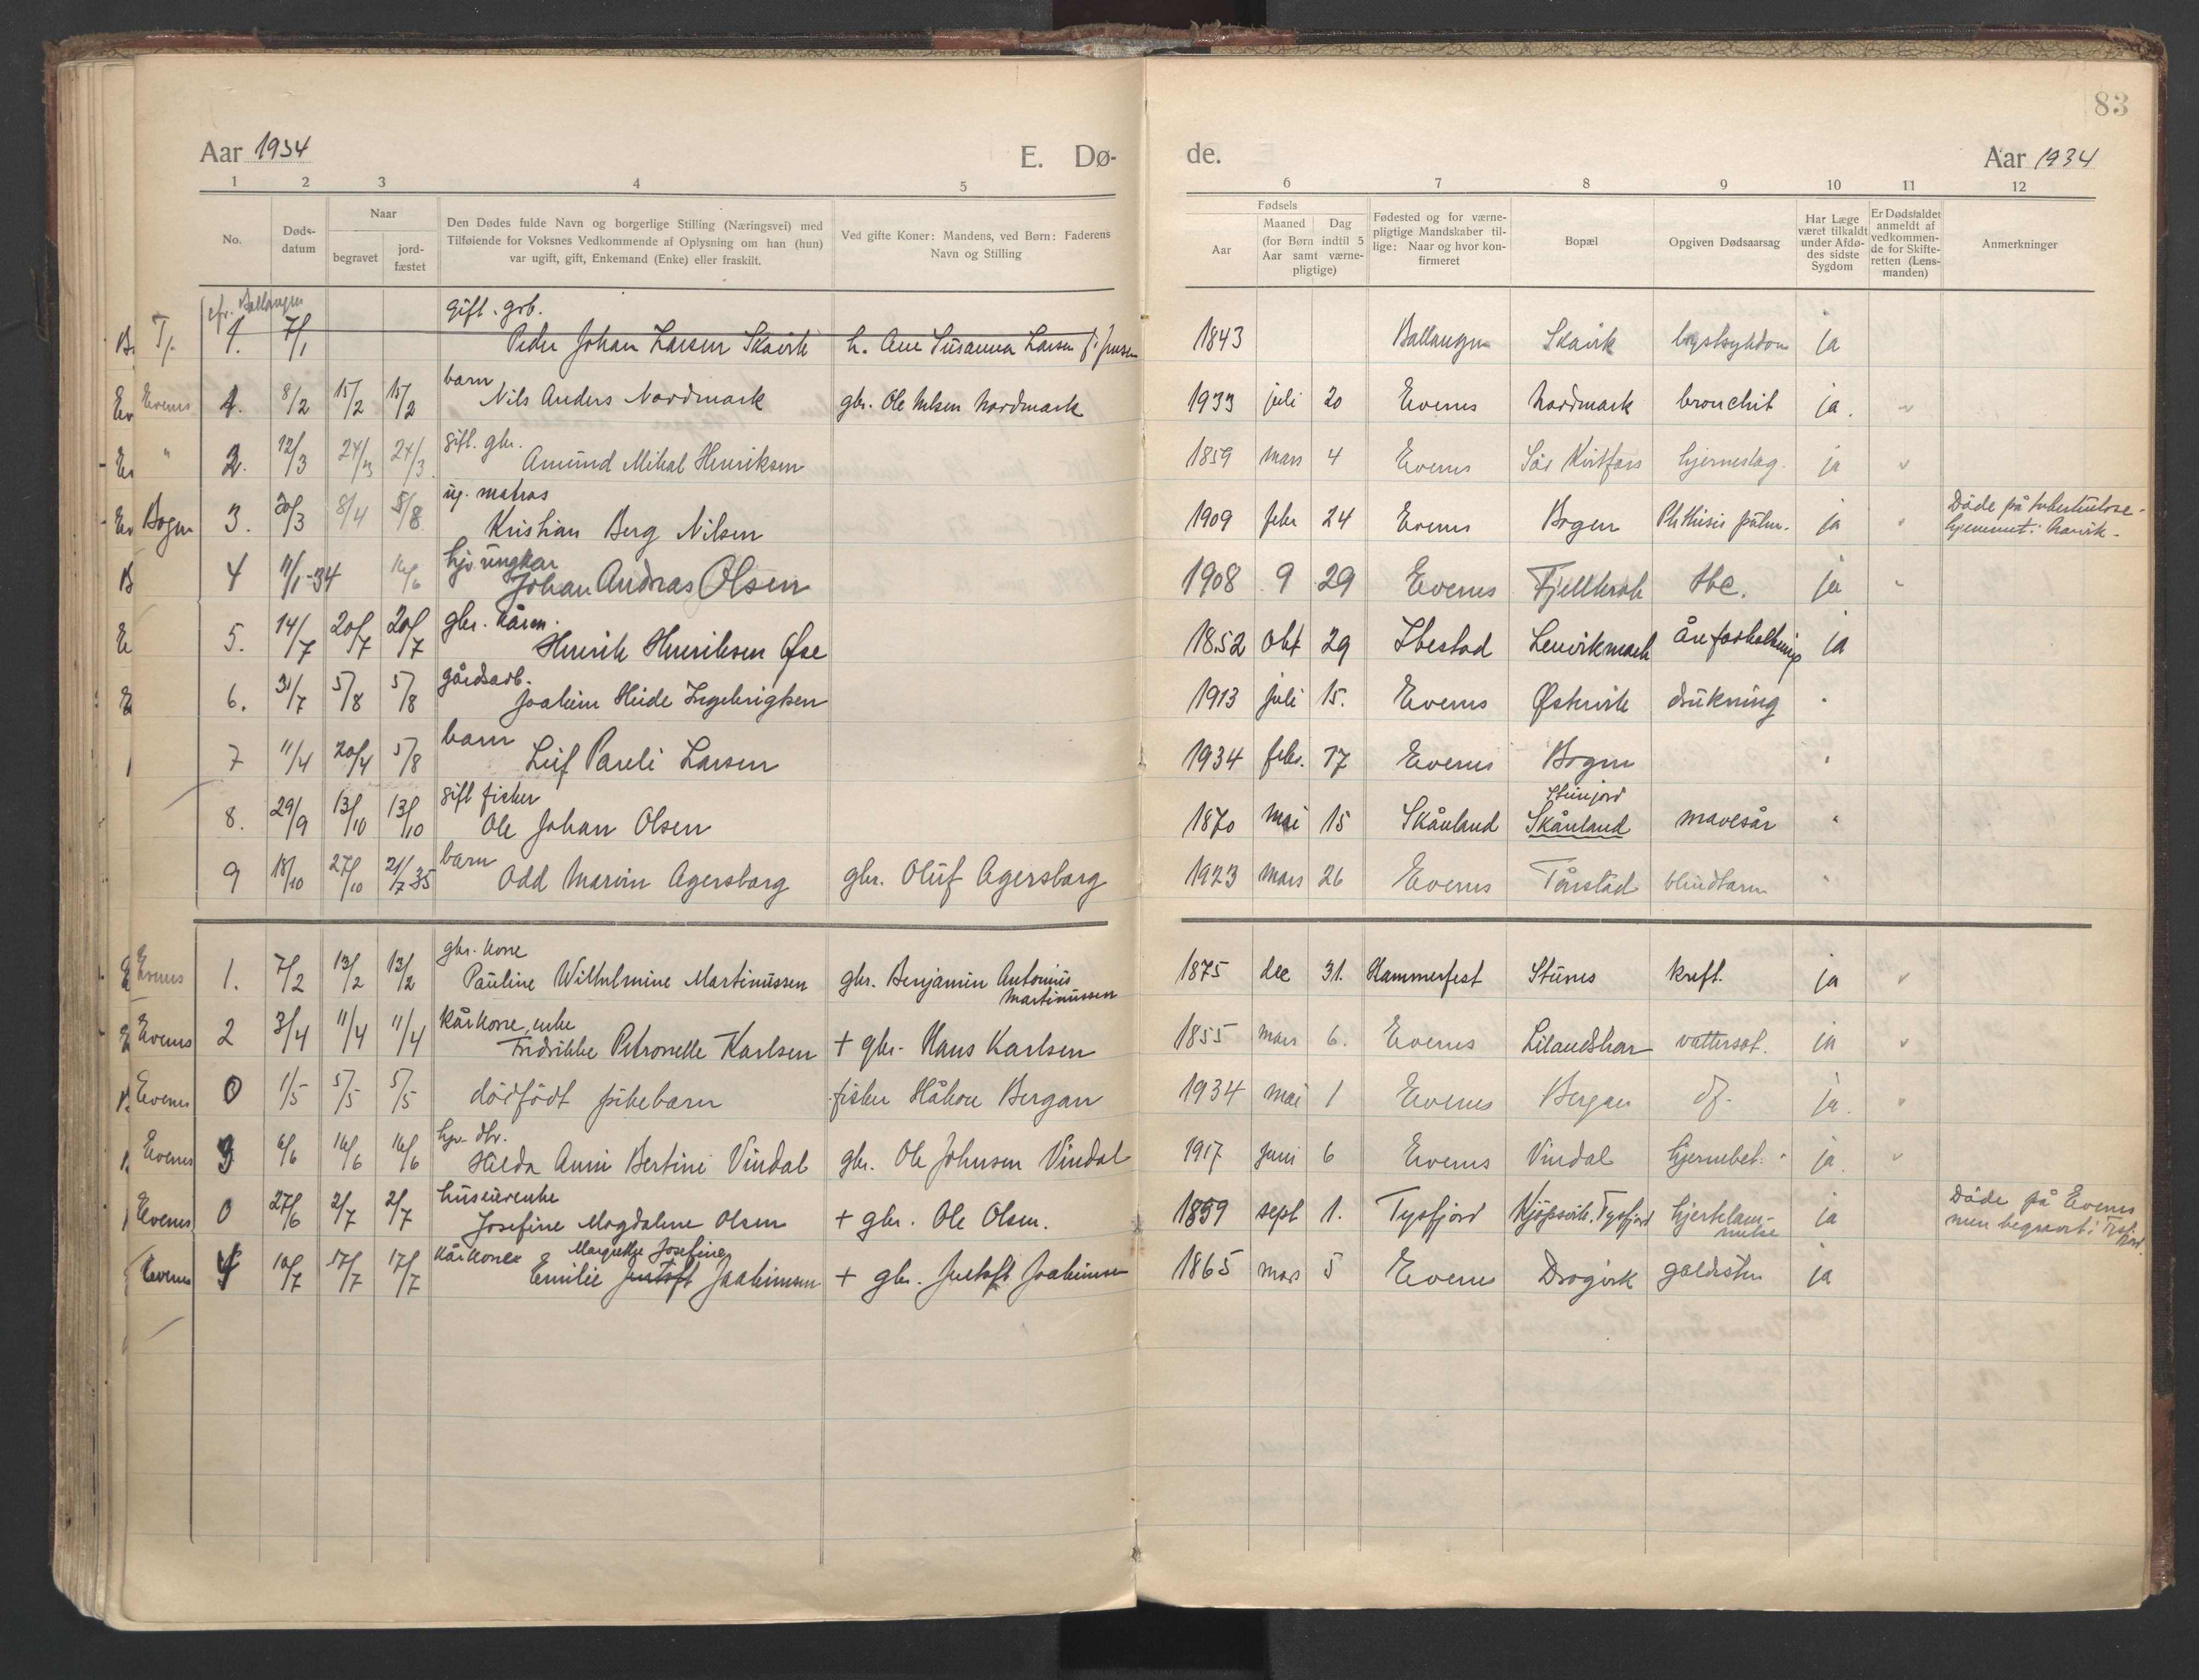 83
Aar 1934 E. Dø- de. Aar 1934
1 2 3 4 5 6 7 8 9 10 11 12
No.
Døds-
datum
Naar
begravet
jord-
fæstet
Den Dødes fulde Navn og borgerlige Stilling (Næringsvei) med
Tilføiende for Voksnes Vedkommende af Oplysning om han (hun)
var ugift, gift, Enkemand (Enke) eller fraskilt.
Ved gifte Koner: Mandens, ved Børn: Faderens
Navn og Stilling
Fødsels
Aar
Maaned Dag
(for Børn indtil 5
Aar samt værne-
pligtige)
Fødested og for værne-
pligtige Mandskaber til-
lige: Naar og hvor kon-
firmeret
Bopæl
Opgiven Dødsaarsag
Har Læge
været tilkaldt
under Afdø-
des sidste
Sygdom
Er Dødsfaldet
anmeldt af
vedkommen-
de for Skifte-
retten (Lens-
manden)
Anmerkninger
cfr. Ballangen gift. grb.
1. 7/1 Peder Johan Larsen Skavik h. Ane Susanna Larsen f. Jensen 1843 Ballangen Skavik brystsykdom ja
barn
Evenes 1. 8/2 15/2 15/2 Nils Anders Nordmark gbr. Ole Nilsen Nordmark 1933 juli 20 Evenes Nordmark bronchit ja.
gift. gbr.
" 2. 12/3 24/3 24/3 Amund Mikal Henriksen 1859 mars 4 Evenes Sör Kvitfors hjerneslag. ja
ug. matros
Bogen 3. 30/3 8/4 5/8 Kristian Berg Nilsen 1909 febr 24 Evenes Bogen Phthisis pulm. ja Döde på tuberkulose-
hjemmet i Narvik.
hjv ungkar
4 11/1-34 16/6 Johan Andreas Olsen 1908 9 29 Evenes Fjellkrok tbc. ja
gbr. kårm.
5. 14/7 20/7 20/7 Henrik Henriksen Øse 1852 okt 29 Ibestad Lenvikmark åreforkalkning ja
gårdsarb.
6. 31/7 5/8 5/8 Joakim Heide Ingebrigtsen 1913 juli 15. Evenes Østervik drukning "
barn
7 11/4 20/4 5/8 Leif Pareli Larsen 1934 febr. 17 Evenes Bogen "
gift fisker Steinjord
8. 29/9 13/10 13/10 Ole Johan Olsen 1870 mai 15 Skånland Skånland mavesår "
barn
9 18/10 27/10 21/7-35 Odd Marvin Agersborg gbr. Oluf Agersborg 1923 mars 26 Evenes Tårstad blindtarm "
gbr. kone
Evenes 1. 7/2 13/2 13/2 Pauline Wilhelmine Martinussen gbr. Benjamin Antonius
Martinussen 1875 dec 31. Hammerfest Stunes kreft. ja
kårkone, enke
Evenes 2 3/4 11/4 11/4 Fredrikke Petronelle Karlsen + gbr. Hans Karlsen 1855 mars 6. Evenes Lilandskar vattersot. ja
Evenes 0 1/5 5/5 5/5 dödfödt pikebarn fisker Håkon Bergan 1934 mai 1 Evenes Bergan df. ja.
hjv. dtr.
Evenes 3 6/6 16/6 16/6 Hilda Anni Bertine Vindal gbr. Ole Johnsen Vindal 1917 juni 6 Evenes Vindal hjernebet. ja.
husmorenke
Evenes 0 27/6 2/7 2/7 Josefine Magdalene Olsen + gbr. Ole Olsen. 1859 sept 1. Tysfjord Kjöpsvik, Tysfjord hjertelam-
melse ja Döde på Evenes
men begravet i Tysfjord.
kårkone Margrethe Josefine
Evenes 4 10/7 17/7 17/7 Emilie Justoft Joakimsen + gbr. Justoft Joakimsen 1865 mars 5 Evenes Dragvik galdesten ja